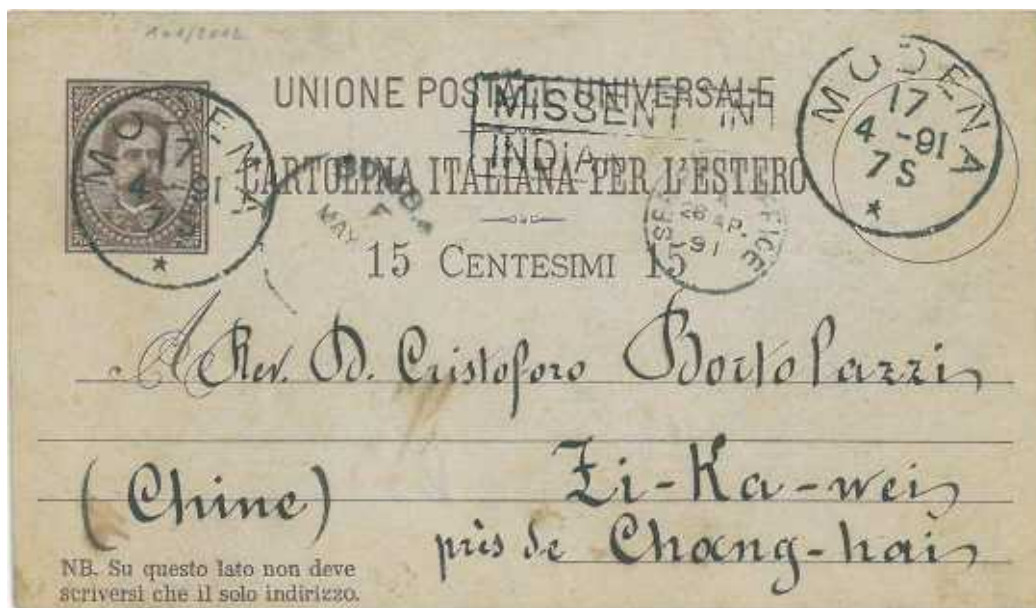 UNIONE POSTALE UNIVERSALE
MISSENT
INDIA
CARTOLINA ITALIANA PER L'ESTERO
15 CENTESIMI 15
MODENA
17
4 -91
7 S
MODENA
MAY
OFFICE
91
A
Rev. D. Cristoforo Bortolazzi
Zi-Ka-wei
(Chine)
près de Chang-hai
NB. Su questo lato non deve
scriversi che il solo indirizzo.